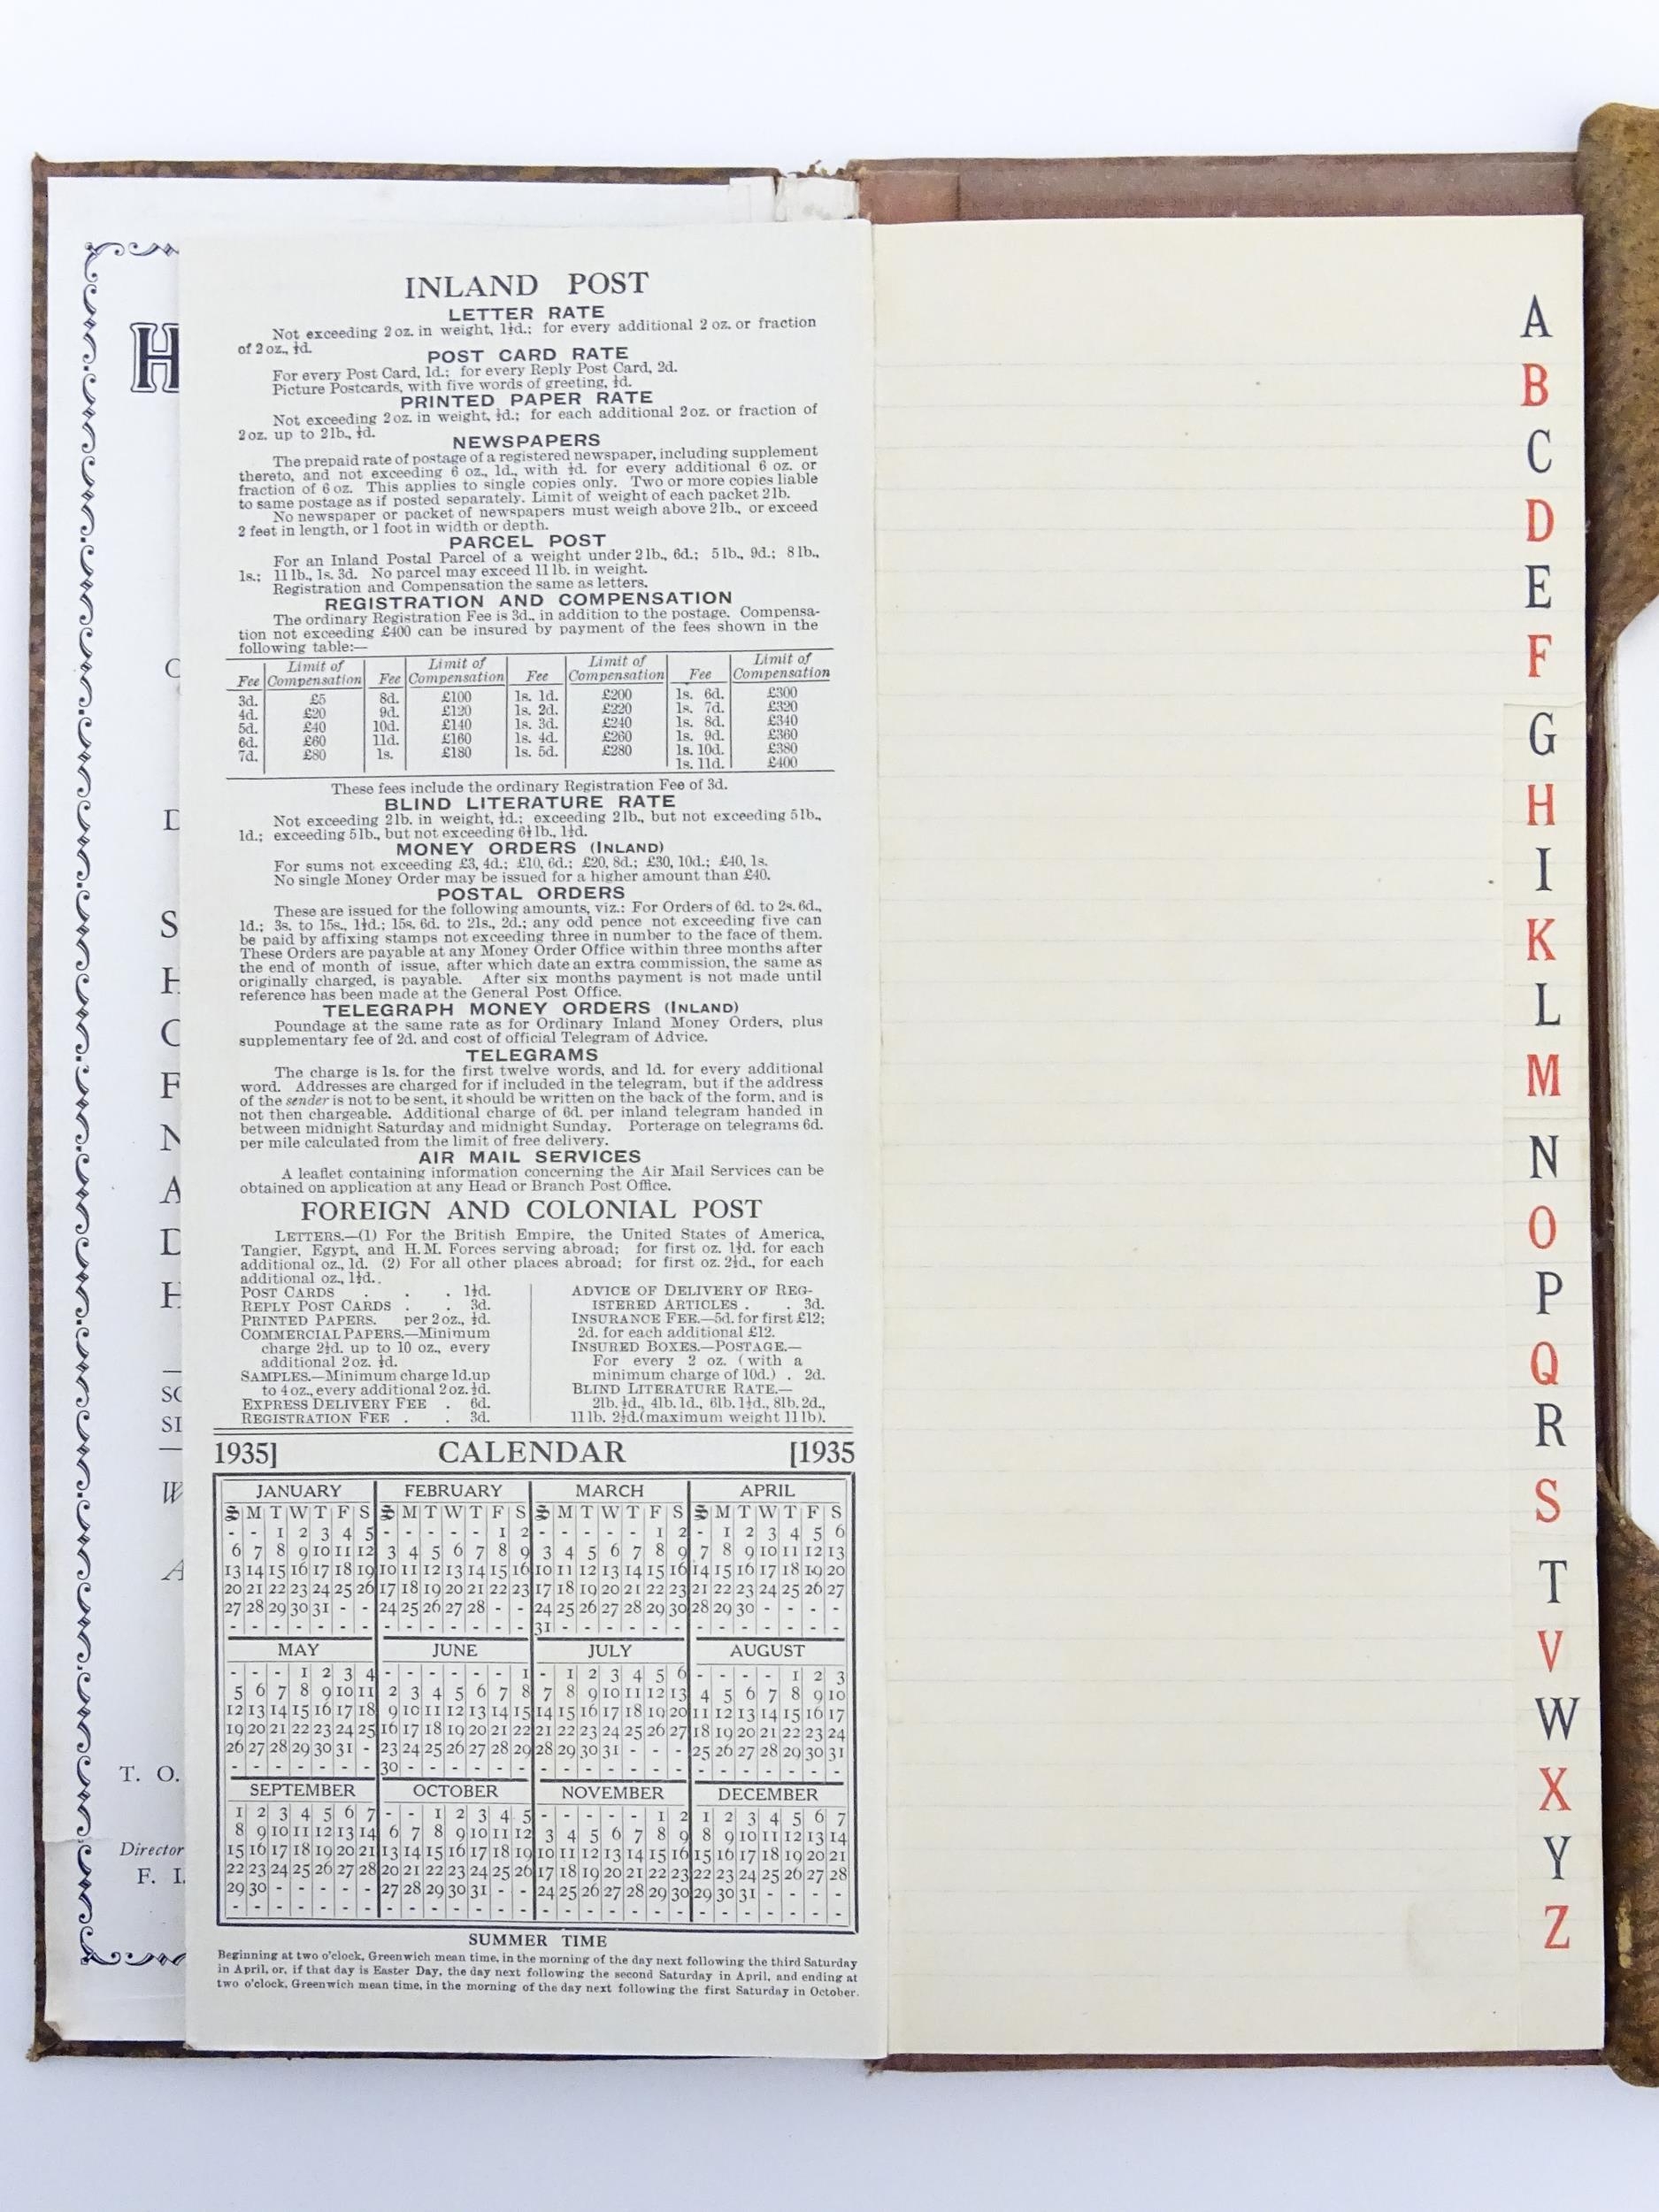 INLAND POST
LETTER RATE
Not exceeding 2 oz. in weight, 1½d.; for every additional 2 oz. or fraction
of 2 oz., ½d.
POST CARD RATE
For every Post Card, 1d.; for every Reply Post Card, 2d.
Picture Postcards, with five words of greeting, ½d.
PRINTED PAPER RATE
Not exceeding 2 oz. in weight, ½d.; for each additional 2 oz. or fraction of
2 oz. up to 2 lb., ½d.
NEWSPAPERS
The prepaid rate of postage of a registered newspaper, including supplement
thereto, and not exceeding 6 oz., 1d., with ½d. for every additional 6 oz. or
fraction of 6 oz. This applies to single copies only. Two or more copies liable
to same postage as if posted separately. Limit of weight of each packet 2 lb.
No newspaper or packet of newspapers must weigh above 2 lb., or exceed
2 feet in length, or 1 foot in width or depth.
PARCEL POST
For an Inland Postal Parcel of a weight under 2 lb., 6d.; 5 lb., 9d.; 8 lb.,
1s.; 11 lb., 1s. 3d. No parcel may exceed 11 lb. in weight.
Registration and Compensation the same as letters.
REGISTRATION AND COMPENSATION
The ordinary Registration Fee is 3d., in addition to the postage. Compensa-
tion not exceeding £400 can be insured by payment of the fees shown in the
following table:—
Fee Limit of Compensation Fee Limit of Compensation Fee Limit of Compensation Fee Limit of Compensation
3d. £5 8d. £100 1s. 1d. £200 1s. 6d. £300
4d. £20 9d. £120 1s. 2d. £220 1s. 7d. £320
5d. £40 10d. £140 1s. 3d. £240 1s. 8d. £340
6d. £60 11d. £160 1s. 4d. £260 1s. 9d. £360
7d. £80 1s. £180 1s. 5d. £280 1s. 10d. £380
1s. 11d. £400
These fees include the ordinary Registration Fee of 3d.
BLIND LITERATURE RATE
Not exceeding 2 lb. in weight, ½d.; exceeding 2 lb., but not exceeding 5 lb.,
1d.; exceeding 5 lb., but not exceeding 6½ lb., 1½d.
MONEY ORDERS (INLAND)
For sums not exceeding £3, 4d.; £10, 6d.; £20, 8d.; £30, 10d.; £40, 1s.
No single Money Order may be issued for a higher amount than £40.
POSTAL ORDERS
These are issued for the following amounts, viz.: For Orders of 6d. to 2s. 6d.,
1d.; 3s. to 15s., 1½d.; 15s. 6d. to 21s., 2d.; any odd pence not exceeding five can
be paid by affixing stamps not exceeding three in number to the face of them.
These Orders are payable at any Money Order Office within three months after
the end of month of issue, after which date an extra commission, the same as
originally charged, is payable. After six months payment is not made until
reference has been made at the General Post Office.
TELEGRAPH MONEY ORDERS (INLAND)
Poundage at the same rate as for Ordinary Inland Money Orders, plus
supplementary fee of 2d. and cost of official Telegram of Advice.
TELEGRAMS
The charge is 1s. for the first twelve words, and 1d. for every additional
word. Addresses are charged for if included in the telegram, but if the address
of the sender is not to be sent, it should be written on the back of the form, and is
not then chargeable. Additional charge of 6d. per inland telegram handed in
between midnight Saturday and midnight Sunday. Porterage on telegrams 6d.
per mile calculated from the limit of free delivery.
AIR MAIL SERVICES
A leaflet containing information concerning the Air Mail Services can be
obtained on application at any Head or Branch Post Office.
FOREIGN AND COLONIAL POST
LETTERS.—(1) For the British Empire, the United States of America,
Tangier, Egypt, and H.M. Forces serving abroad; for first oz. 1½d. for each
additional oz., 1d. (2) For all other places abroad; for first oz. 2½d., for each
additional oz., 1½d..
POST CARDS . . . 1½d.
REPLY POST CARDS . . 3d.
PRINTED PAPERS. per 2 oz., ½d.
COMMERCIAL PAPERS.—Minimum
charge 2½d. up to 10 oz., every
additional 2 oz. ½d.
SAMPLES.—Minimum charge 1d. up
to 4 oz., every additional 2 oz. ½d.
EXPRESS DELIVERY FEE . 6d.
REGISTRATION FEE . . 3d.
ADVICE OF DELIVERY OF REG-
ISTERED ARTICLES . . 3d.
INSURANCE FEE.—5d. for first £12;
2d. for each additional £12.
INSURED BOXES.—POSTAGE.—
For every 2 oz. (with a
minimum charge of 10d.) . 2d.
BLIND LITERATURE RATE.—
2lb. ½d., 4lb. 1d., 6lb. 1½d., 8lb. 2d.,
11 lb. 2½d. (maximum weight 11 lb).
1935] CALENDAR [1935
JANUARY FEBRUARY MARCH APRIL
S M T W T F S S M T W T F S S M T W T F S S M T W T F S
- - 1 2 3 4 5 - - - - - 1 2 - - - - - 1 2 - 1 2 3 4 5 6
6 7 8 9 10 11 12 3 4 5 6 7 8 9 3 4 5 6 7 8 9 7 8 9 10 11 12 13
13 14 15 16 17 18 19 10 11 12 13 14 15 16 10 11 12 13 14 15 16 14 15 16 17 18 19 20
20 21 22 23 24 25 26 17 18 19 20 21 22 23 17 18 19 20 21 22 23 21 22 23 24 25 26 27
27 28 29 30 31 - - 24 25 26 27 28 - - 24 25 26 27 28 29 30 28 29 30 - - - -
- - - - - - - - - - - - - - 31 - - - - - - - - - - - - -
MAY JUNE JULY AUGUST
- - - 1 2 3 4 - - - - - - 1 - 1 2 3 4 5 6 - - - - 1 2 3
5 6 7 8 9 10 11 2 3 4 5 6 7 8 7 8 9 10 11 12 13 4 5 6 7 8 9 10
12 13 14 15 16 17 18 9 10 11 12 13 14 15 14 15 16 17 18 19 20 11 12 13 14 15 16 17
19 20 21 22 23 24 25 16 17 18 19 20 21 22 21 22 23 24 25 26 27 18 19 20 21 22 23 24
26 27 28 29 30 31 - 23 24 25 26 27 28 29 28 29 30 31 - - - 25 26 27 28 29 30 31
- - - - - - - 30 - - - - - - - - - - - - - - - - - - - -
SEPTEMBER OCTOBER NOVEMBER DECEMBER
1 2 3 4 5 6 7 - - 1 2 3 4 5 - - - - - 1 2 1 2 3 4 5 6 7
8 9 10 11 12 13 14 6 7 8 9 10 11 12 3 4 5 6 7 8 9 8 9 10 11 12 13 14
15 16 17 18 19 20 21 13 14 15 16 17 18 19 10 11 12 13 14 15 16 15 16 17 18 19 20 21
22 23 24 25 26 27 28 20 21 22 23 24 25 26 17 18 19 20 21 22 23 22 23 24 25 26 27 28
29 30 - - - - - 27 28 29 30 31 - - 24 25 26 27 28 29 30 29 30 31 - - - -
- - - - - - - - - - - - - - - - - - - - - - - - - - - -
SUMMER TIME
Beginning at two o'clock, Greenwich mean time, in the morning of the day next following the third Saturday
in April, or, if that day is Easter Day, the day next following the second Saturday in April, and ending at
two o'clock, Greenwich mean time, in the morning of the day next following the first Saturday in October.
H
C
D
S
H
C
F
N
A
D
H
SC
SI
W
A
T. O.
Director
F. I.
A
B
C
D
E
F
G
H
I
K
L
M
N
O
P
Q
R
S
T
V
W
X
Y
Z